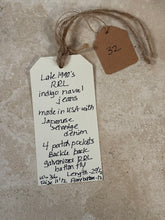 32
Late 1990's
RRL
indigo naval
jeans
made in USA with
Japanese
Selvedge
denim
4 patch pockets
Buckle back
galvanized RRL
button fly
W - 34" Length - 29 1/2
Rise 11 1/2